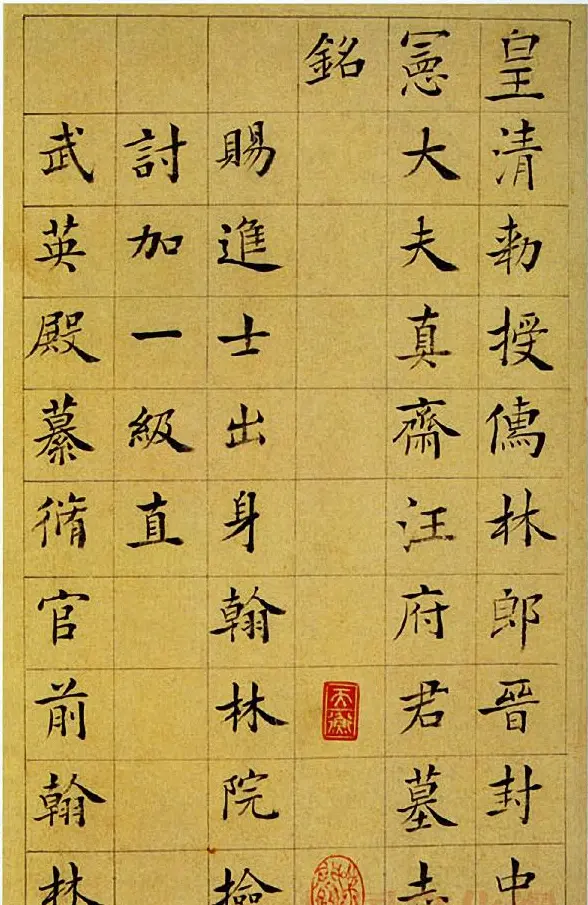 皇清勅授儒林郎晉封中
憲大夫真齋汪府君墓志
銘
賜進士出身翰林院檢
討加一級直
武英殿纂脩官前翰林